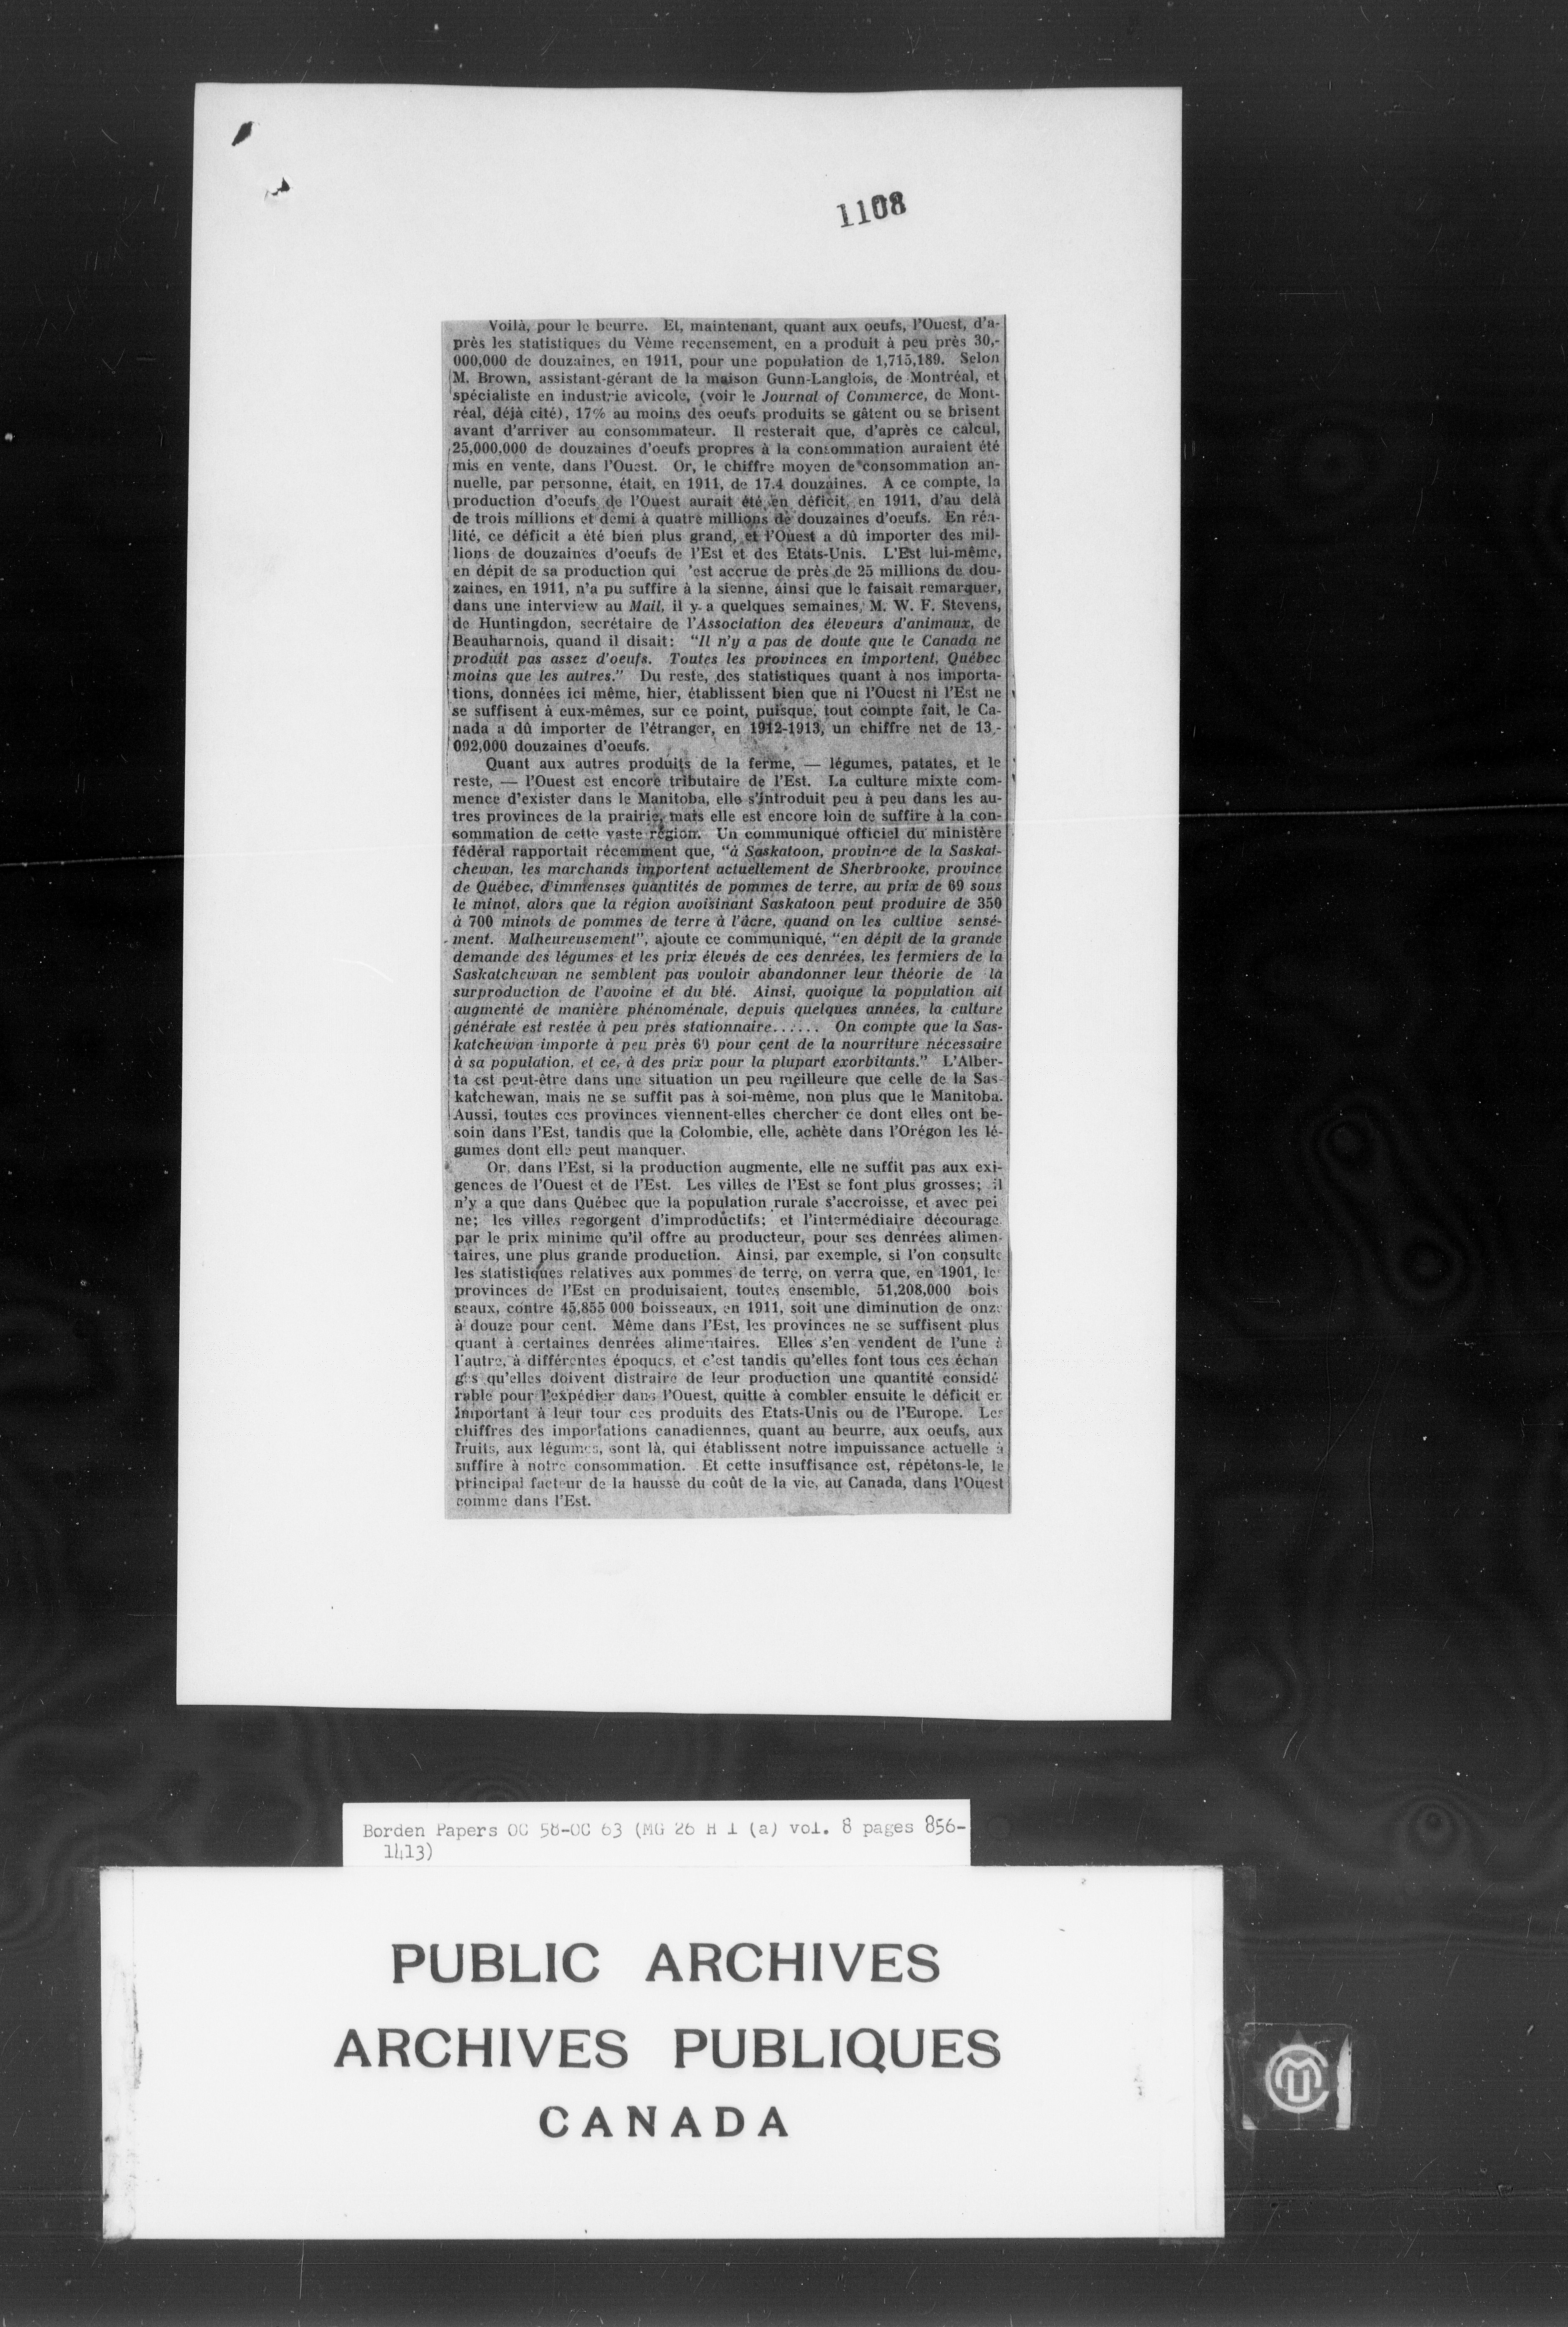 1108
Voilà, pour le beurre. Et, maintenant, quant aux oeufs, l'Ouest, d'a-
près les statistiques du Vème recensement, en a produit à peu près 30,-
000,000 de douzaines, en 1911, pour une population de 1,715,189. Selon
M. Brown, assistant-gérant de la maison Gunn-Langlois, de Montréal, et
spécialiste en industrie avicole, (voir le Journal of Commerce, de Mont-
réal, déjà cité), 17% au moins des oeufs produits se gâtent ou se brisent
avant d'arriver au consommateur. Il resterait que, d'après ce calcul,
25,000,000 de douzaines d'oeufs propres à la consommation auraient été
mis en vente, dans l'Ouest. Or, le chiffre moyen de consommation an-
nuelle, par personne, était, en 1911, de 17.4 douzaines. A ce compte, la
production d'oeufs de l'Ouest aurait été en déficit, en 1911, d'au delà
de trois millions et demi à quatre millions de douzaines d'oeufs. En réa-
lité, ce déficit a été bien plus grand, et l'Ouest a dû importer des mil-
lions de douzaines d'oeufs de l'Est et des Etats-Unis. L'Est lui-même,
en dépit de sa production qui 'est accrue de près de 25 millions de dou-
zaines, en 1911, n'a pu suffire à la sienne, ainsi que le faisait remarquer,
dans une interview au Mail, il y a quelques semaines, M. W. F. Stevens,
de Huntingdon, secrétaire de l'Association des éleveurs d'animaux, de
Beauharnois, quand il disait: "Il n'y a pas de doute que le Canada ne
produit pas assez d'oeufs. Toutes les provinces en importent, Québec
moins que les autres." Du reste, des statistiques quant à nos importa-
tions, données ici même, hier, établissent bien que ni l'Ouest ni l'Est ne
se suffisent à eux-mêmes, sur ce point, puisque, tout compte fait, le Ca-
nada a dû importer de l'étranger, en 1912-1913, un chiffre net de 13,-
092,000 douzaines d'oeufs.
Quant aux autres produits de la ferme, — légumes, patates, et le
reste, — l'Ouest est encore tributaire de l'Est. La culture mixte com-
mence d'exister dans le Manitoba, elle s'introduit peu à peu dans les au-
tres provinces de la prairie, mais elle est encore loin de suffire à la con-
sommation de cette vaste région. Un communiqué officiel du ministère
fédéral rapportait récemment que, "à Saskatoon, province de la Saskat-
chewan, les marchands importent actuellement de Sherbrooke, province
de Québec, d'immenses quantités de pommes de terre, au prix de 69 sous
le minot, alors que la région avoisinant Saskatoon peut produire de 350
à 700 minots de pommes de terre à l'âcre, quand on les cultive sensé-
ment. Malheureusement", ajoute ce communiqué, "en dépit de la grande
demande des légumes et les prix élevés de ces denrées, les fermiers de la
Saskatchewan ne semblent pas vouloir abandonner leur théorie de la
surproduction de l'avoine et du blé. Ainsi, quoique la population ait
augmenté de manière phénoménale, depuis quelques années, la culture
générale est restée à peu près stationnaire...... On compte que la Sas-
katchewan importe à peu près 60 pour cent de la nourriture nécessaire
à sa population, et ce, à des prix pour la plupart exorbitants." L'Alber-
ta est peut-être dans une situation un peu meilleure que celle de la Sas-
katchewan, mais ne se suffit pas à soi-même, non plus que le Manitoba.
Aussi, toutes ces provinces viennent-elles chercher ce dont elles ont be-
soin dans l'Est, tandis que la Colombie, elle, achète dans l'Orégon les lé-
gumes dont elle peut manquer.
Or, dans l'Est, si la production augmente, elle ne suffit pas aux exi-
gences de l'Ouest et de l'Est. Les villes de l'Est se font plus grosses; il
n'y a que dans Québec que la population rurale s'accroisse, et avec pei
ne; les villes regorgent d'improductifs; et l'intermédiaire décourage
par le prix minime qu'il offre au producteur, pour ses denrées alimen-
taires, une plus grande production. Ainsi, par exemple, si l'on consulte
les statistiques relatives aux pommes de terre, on verra que, en 1901, le
provinces de l'Est en produisaient, toutes ensemble, 51,208,000 bois
seaux, contre 45,855 000 boisseaux, en 1911, soit une diminution de onze
à douze pour cent. Même dans l'Est, les provinces ne se suffisent plus
quant à certaines denrées alimentaires. Elles s'en vendent de l'une à
l'autre, à différentes époques, et c'est tandis qu'elles font tous ces échan
ges qu'elles doivent distraire de leur production une quantité considé
rable pour l'expédier dans l'Ouest, quitte à combler ensuite le déficit en
important à leur tour ces produits des Etats-Unis ou de l'Europe. Les
chiffres des importations canadiennes, quant au beurre, aux oeufs, aux
fruits, aux légumes, sont là, qui établissent notre impuissance actuelle à
suffire à notre consommation. Et cette insuffisance est, répétons-le, le
principal facteur de la hausse du coût de la vie, au Canada, dans l'Ouest
comme dans l'Est.
Borden Papers OC 58-OC 63 (MG 26 H 1 (a) vol. 8 pages 856-
1413)
PUBLIC ARCHIVES
ARCHIVES PUBLIQUES
CANADA